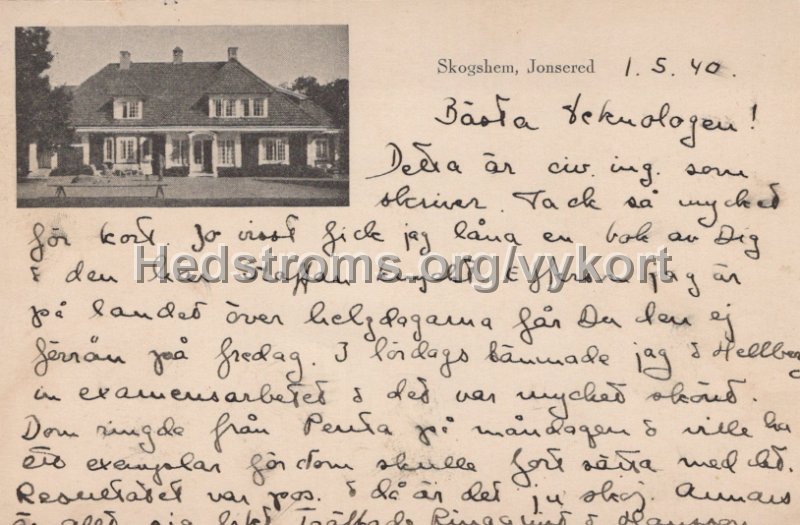 Skogshem, Jonsered 1.5.40.
Bästa teknologen!
Detta är civ. ing. som
skriver. Tack så mycket
för kort. Jo visst fick jag låna en bok av Dig
& den har Staffan Eftersom jag är
Hedstroms.org/vykort
på landet över helgdagarna får Du den ej
förrän på fredag. I lördags lämnade jag & Hellberg
in examensarbetet & det var mycket skönt.
Dom ringde från Penta på måndagen & ville ha
ett exemplar för dom skulle fort sätta med det.
Resultatet var pos. & då är det ju skoj. Annars
är allt sig likt Träffade Ringqvist &